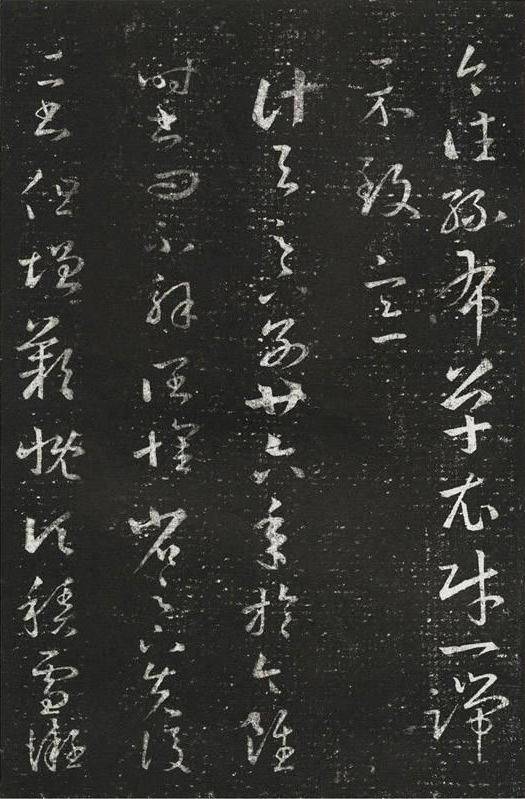 今往絲布單衣財一端
示致意
計與足下別廿六年於今雖
時書問不解闊懷省足下先後
二書但增歎慨頃積雪凝